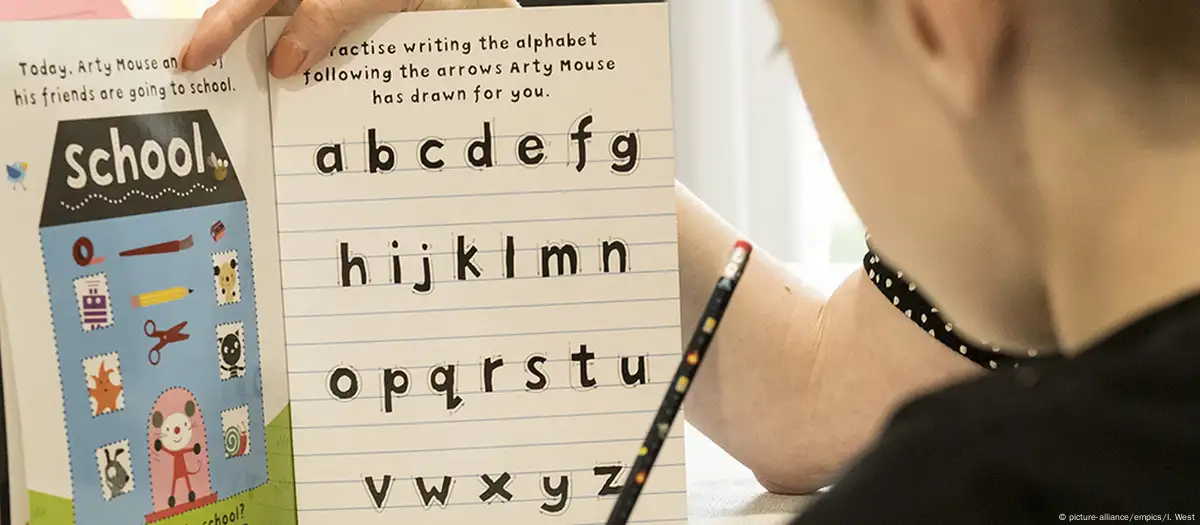 Today, Arty Mouse an
his friends are going to school.
School
ractise writing the alphabet
following the arrows Arty Mouse
has drawn for you.
a b c d e f g
h i j k l m n
o p q r s t u
v w x y z
school?
© picture-alliance/empics/I. West